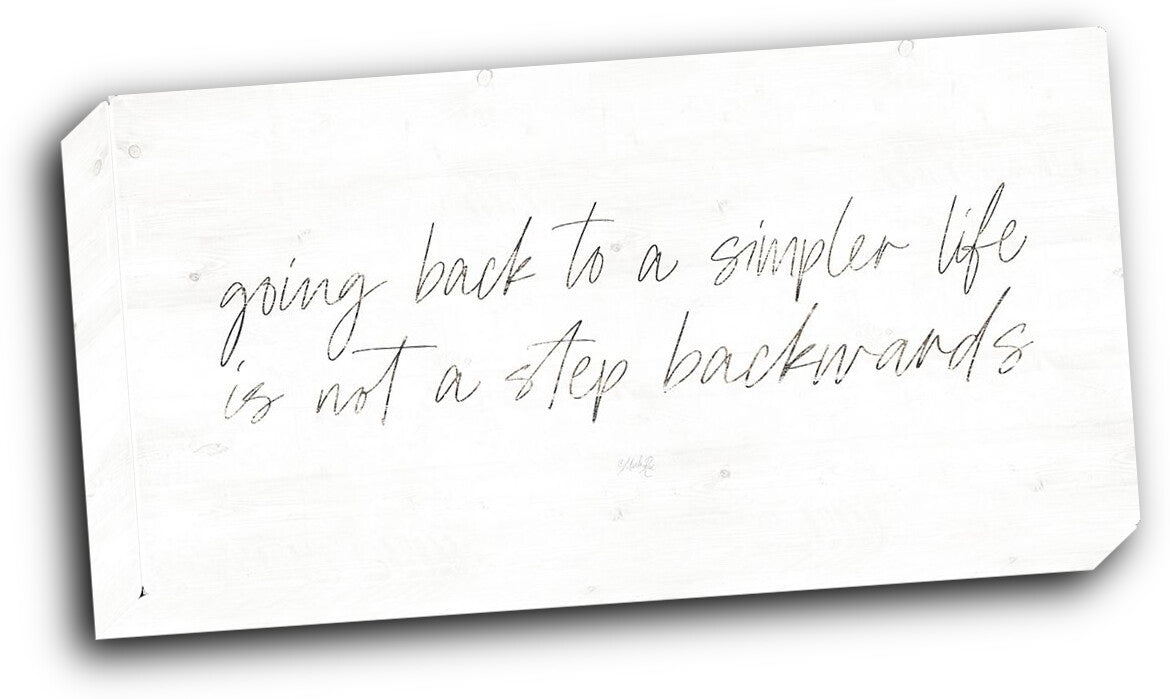 going back to a simpler life
is not a step backwards